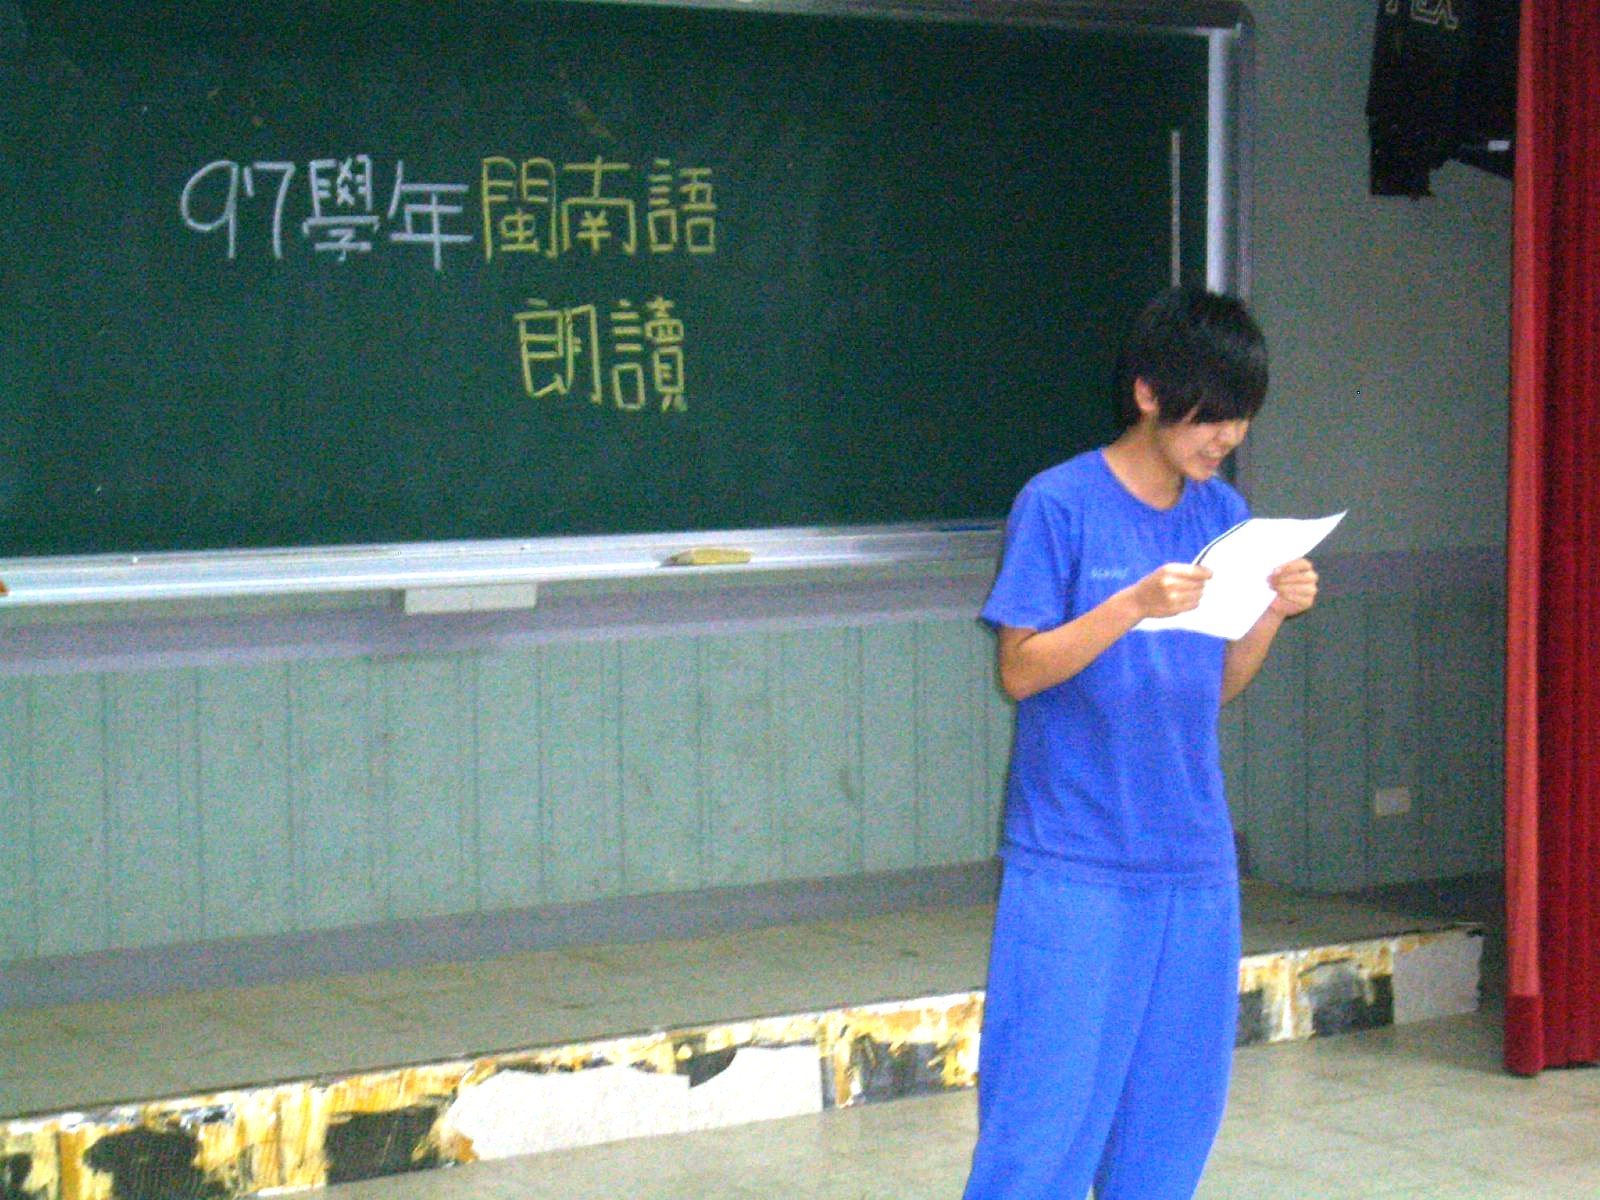 97學年閩南語
朗讀